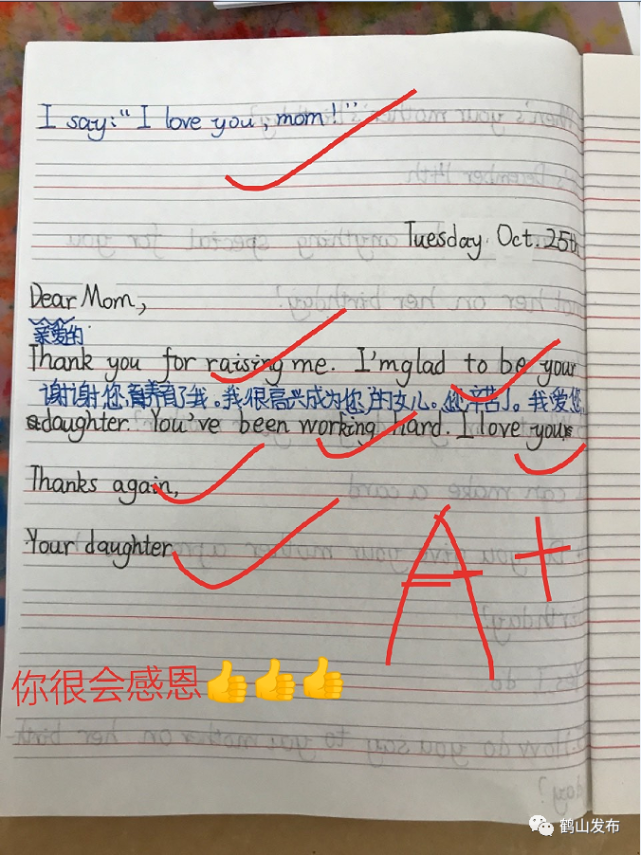 I say: "I love you, mom!"
Tuesday. Oct. 25th
Dear Mom,
亲爱的
Thank you for raising me. I'm glad to be your
谢谢您养育了我。我很高兴成为您的女儿。您辛苦了。我爱您
daughter. You've been working hard. I love you
Thanks again,
Your daughter
A+
你很会感恩👍👍👍
鹤山发布